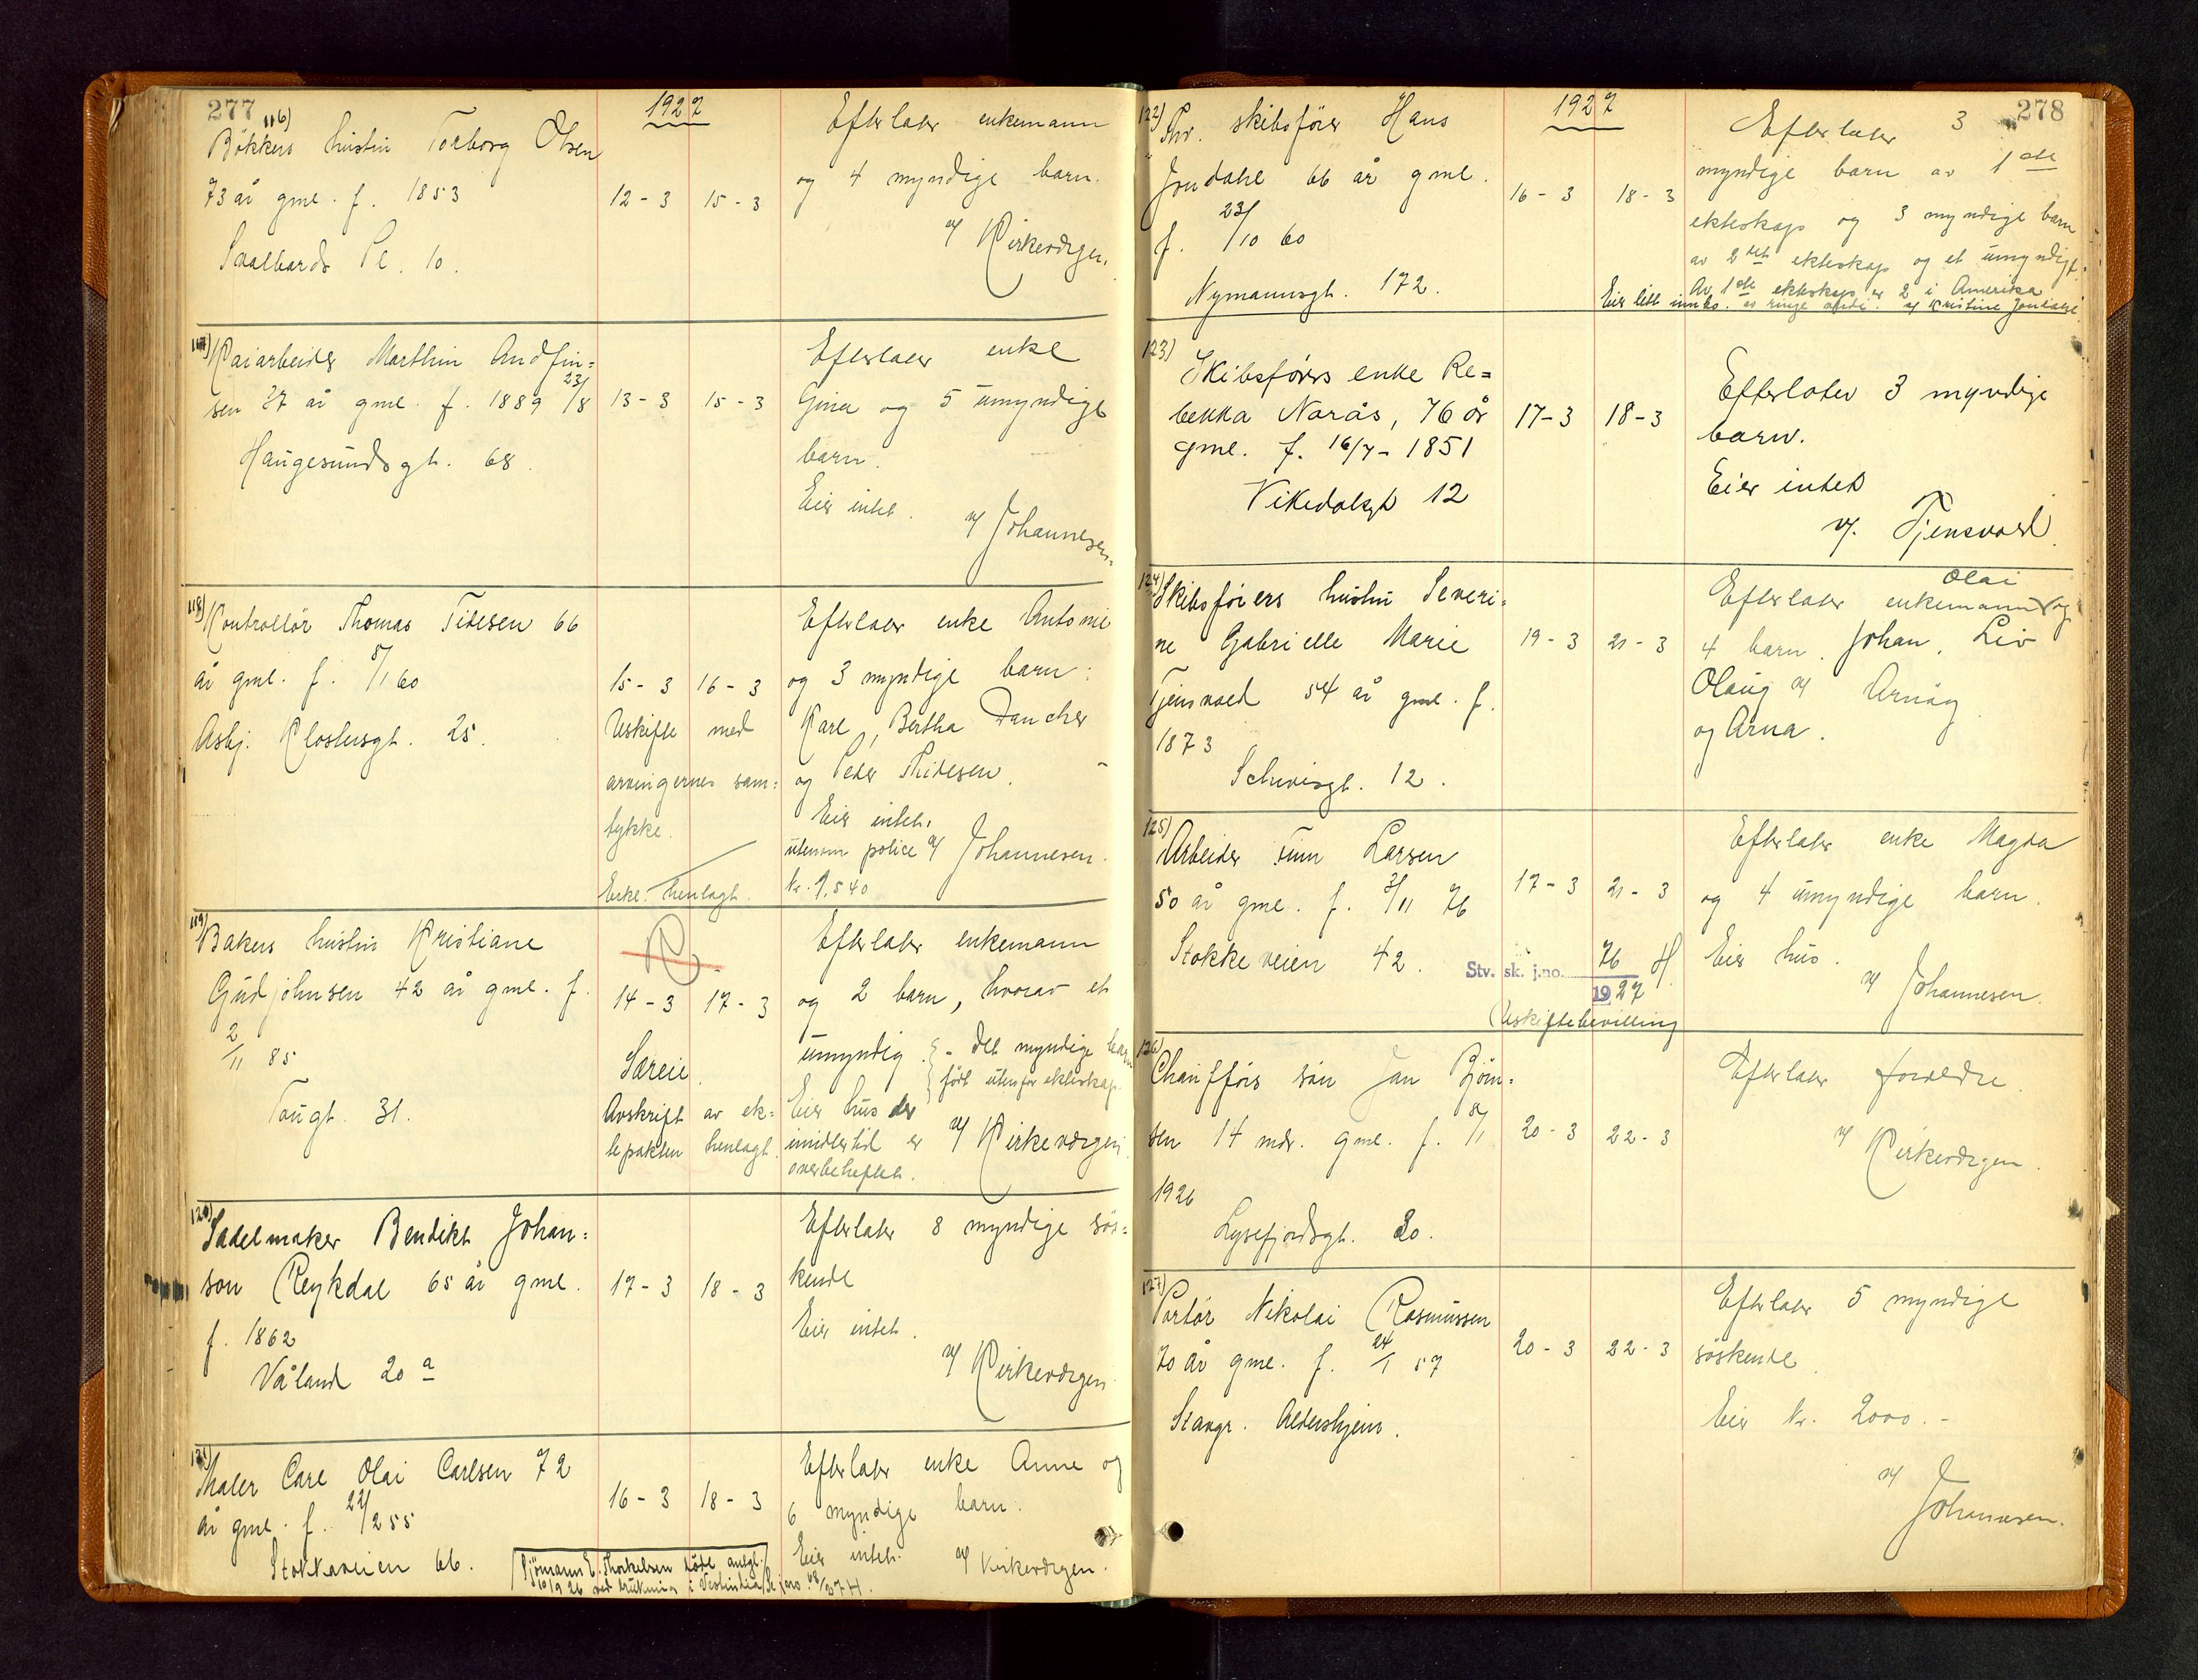 277
1927
116)
Bökkers hustru Torborg Olsen
73 år gml. f. 1853
Svalbards Pl. 10.
12-3 15-3
Efterlater enkemann
og 4 myndige barn.
v/ Kirkevergen.
117)
Kaiarbeider Marthin Andfin=
sen 37 år gml. f. 1889 23/8
Haugesundsgt. 68.
13-3 15-3
Efterlater enke
Gina og 5 umyndige
barn.
Eier intet.
v/ Johannesen.
118)
Kontrollör Thomas Tidesen 66
år gml. f. 8/1 60
Asbj. Klostersgt. 25.
15-3 16-3
Uskifte med
arvingernes sam=
tykke.
Erkl. henlagt.
Efterlater enke Antonie
og 3 myndige barn:
Karl, Bertha Dancher
og Peder Thidesen.
Eier intet.
utenom police v/ Johannesen.
Kr. 1,540
119)
Bakers hustru Kristiane
Gudjohnsen 42 år gml. f.
2/11 85
Tougt. 31.
14-3 17-3
Særeie.
Avskrift av ek=
tepakten henlagt.
Efterlater enkemann
og 2 barn, hvorav et
umyndig. - Det myndige barn
født utenfor ekteskap.
Eier hus der
imidlertid er v/ Kirkevergen
overbeheftet.
120)
Sadelmaker Bendikt Johan=
son Reykdal 65 år gml.
f. 1862
Våland 20 a
17-3 18-3
Efterlater 8 myndige søs=
kende
Eier intet.
v/ Kirkevergen
121)
Maler Carl Olai Carlsen 72
år gml. f. 22/2 55
Stokkaveien 66.
16-3 18-3
Efterlater enke Anne og
6 myndige barn.
Eier intet.
v/ Kirkevergen.
Sjömann E. Thorkelsen död angt.
10/9 26 ved drukning i
278
1927
122)
Fhv. skibsfører Hans
Jondahl 66 år gml.
f. 23/10 60
Nymannsgt. 172.
16-3 18-3
Efterlater 3
myndige barn av 1ste
ekteskap og 3 myndige barn
av 2det ekteskap og et umyndig.
Av 1ste ekteskap er 2 i Amerika
Eier litt innbo. av ringe verdi. v/ Kristine Jondahl.
123)
Skibsførers enke Re=
bekka Narås, 76 år
gml. f. 16/7-1851
Vikedalsgt 12
17-3 18-3
Efterlater 3 myndige
barn.
Eier intet
v/. Tjensvold.
124)
Skibsførers hustru Severi=
ne Gabrielle Marie
Tjensvold 54 år gml. f.
1873
Schivesgt. 12.
19-3 21-3
Olai
Efterlater enkemann og
4 barn. Johan, Liv
Olaug v/ Arnåg
og Arna.
125)
Arbeider Finn Larsen
50 år gml. f. 3/11 76
Stokkeveien 42.
17-3 21-3
Stv. sk. j.no. 76 H
1927
Uskiftebevilling
Efterlater enke Magda
og 4 umyndige barn.
Eier hus.
v/ Johannesen.
126)
Chaufförs sön Jan Björn=
sen 14 mdr. gml. f. 8/1
1926
Lysefjordsgt. 20.
20-3 22-3
Efterlater foreldre.
v/ Kirkevergen.
127)
Portør Nikolai Rasmussen
70 år gml. f. 24/1 57
Stavgr. Aldershjem.
20-3 22-3
Efterlater 5 myndige
søskende.
Eier Kr. 2000.-
v/ Johannesen.